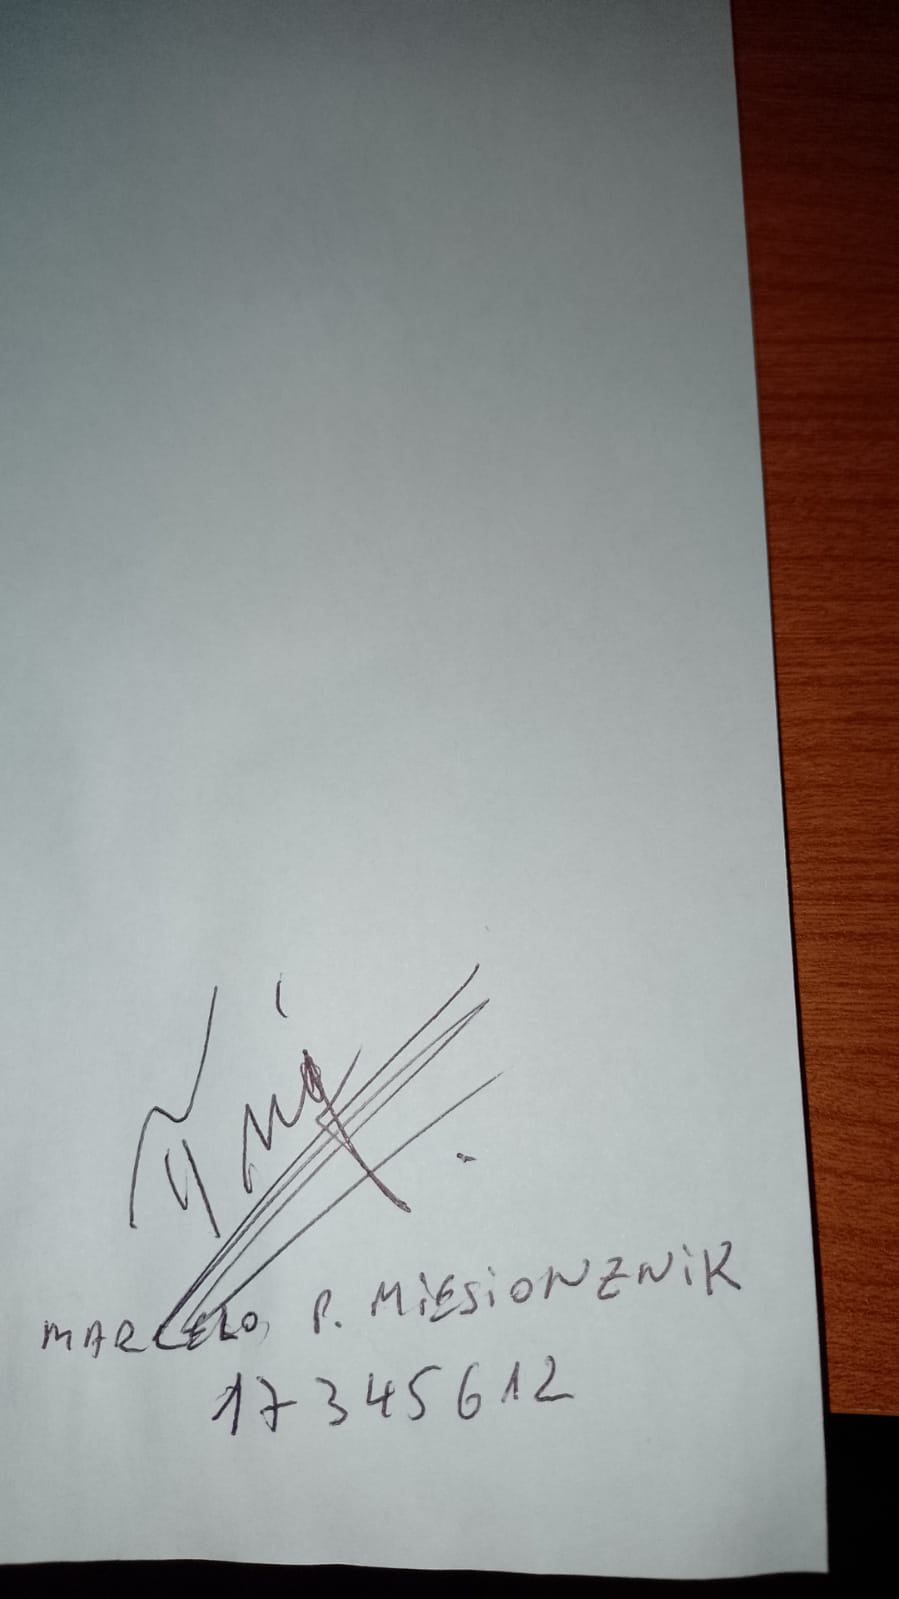 MARCELO, P. MIESIONZNIK
17345612